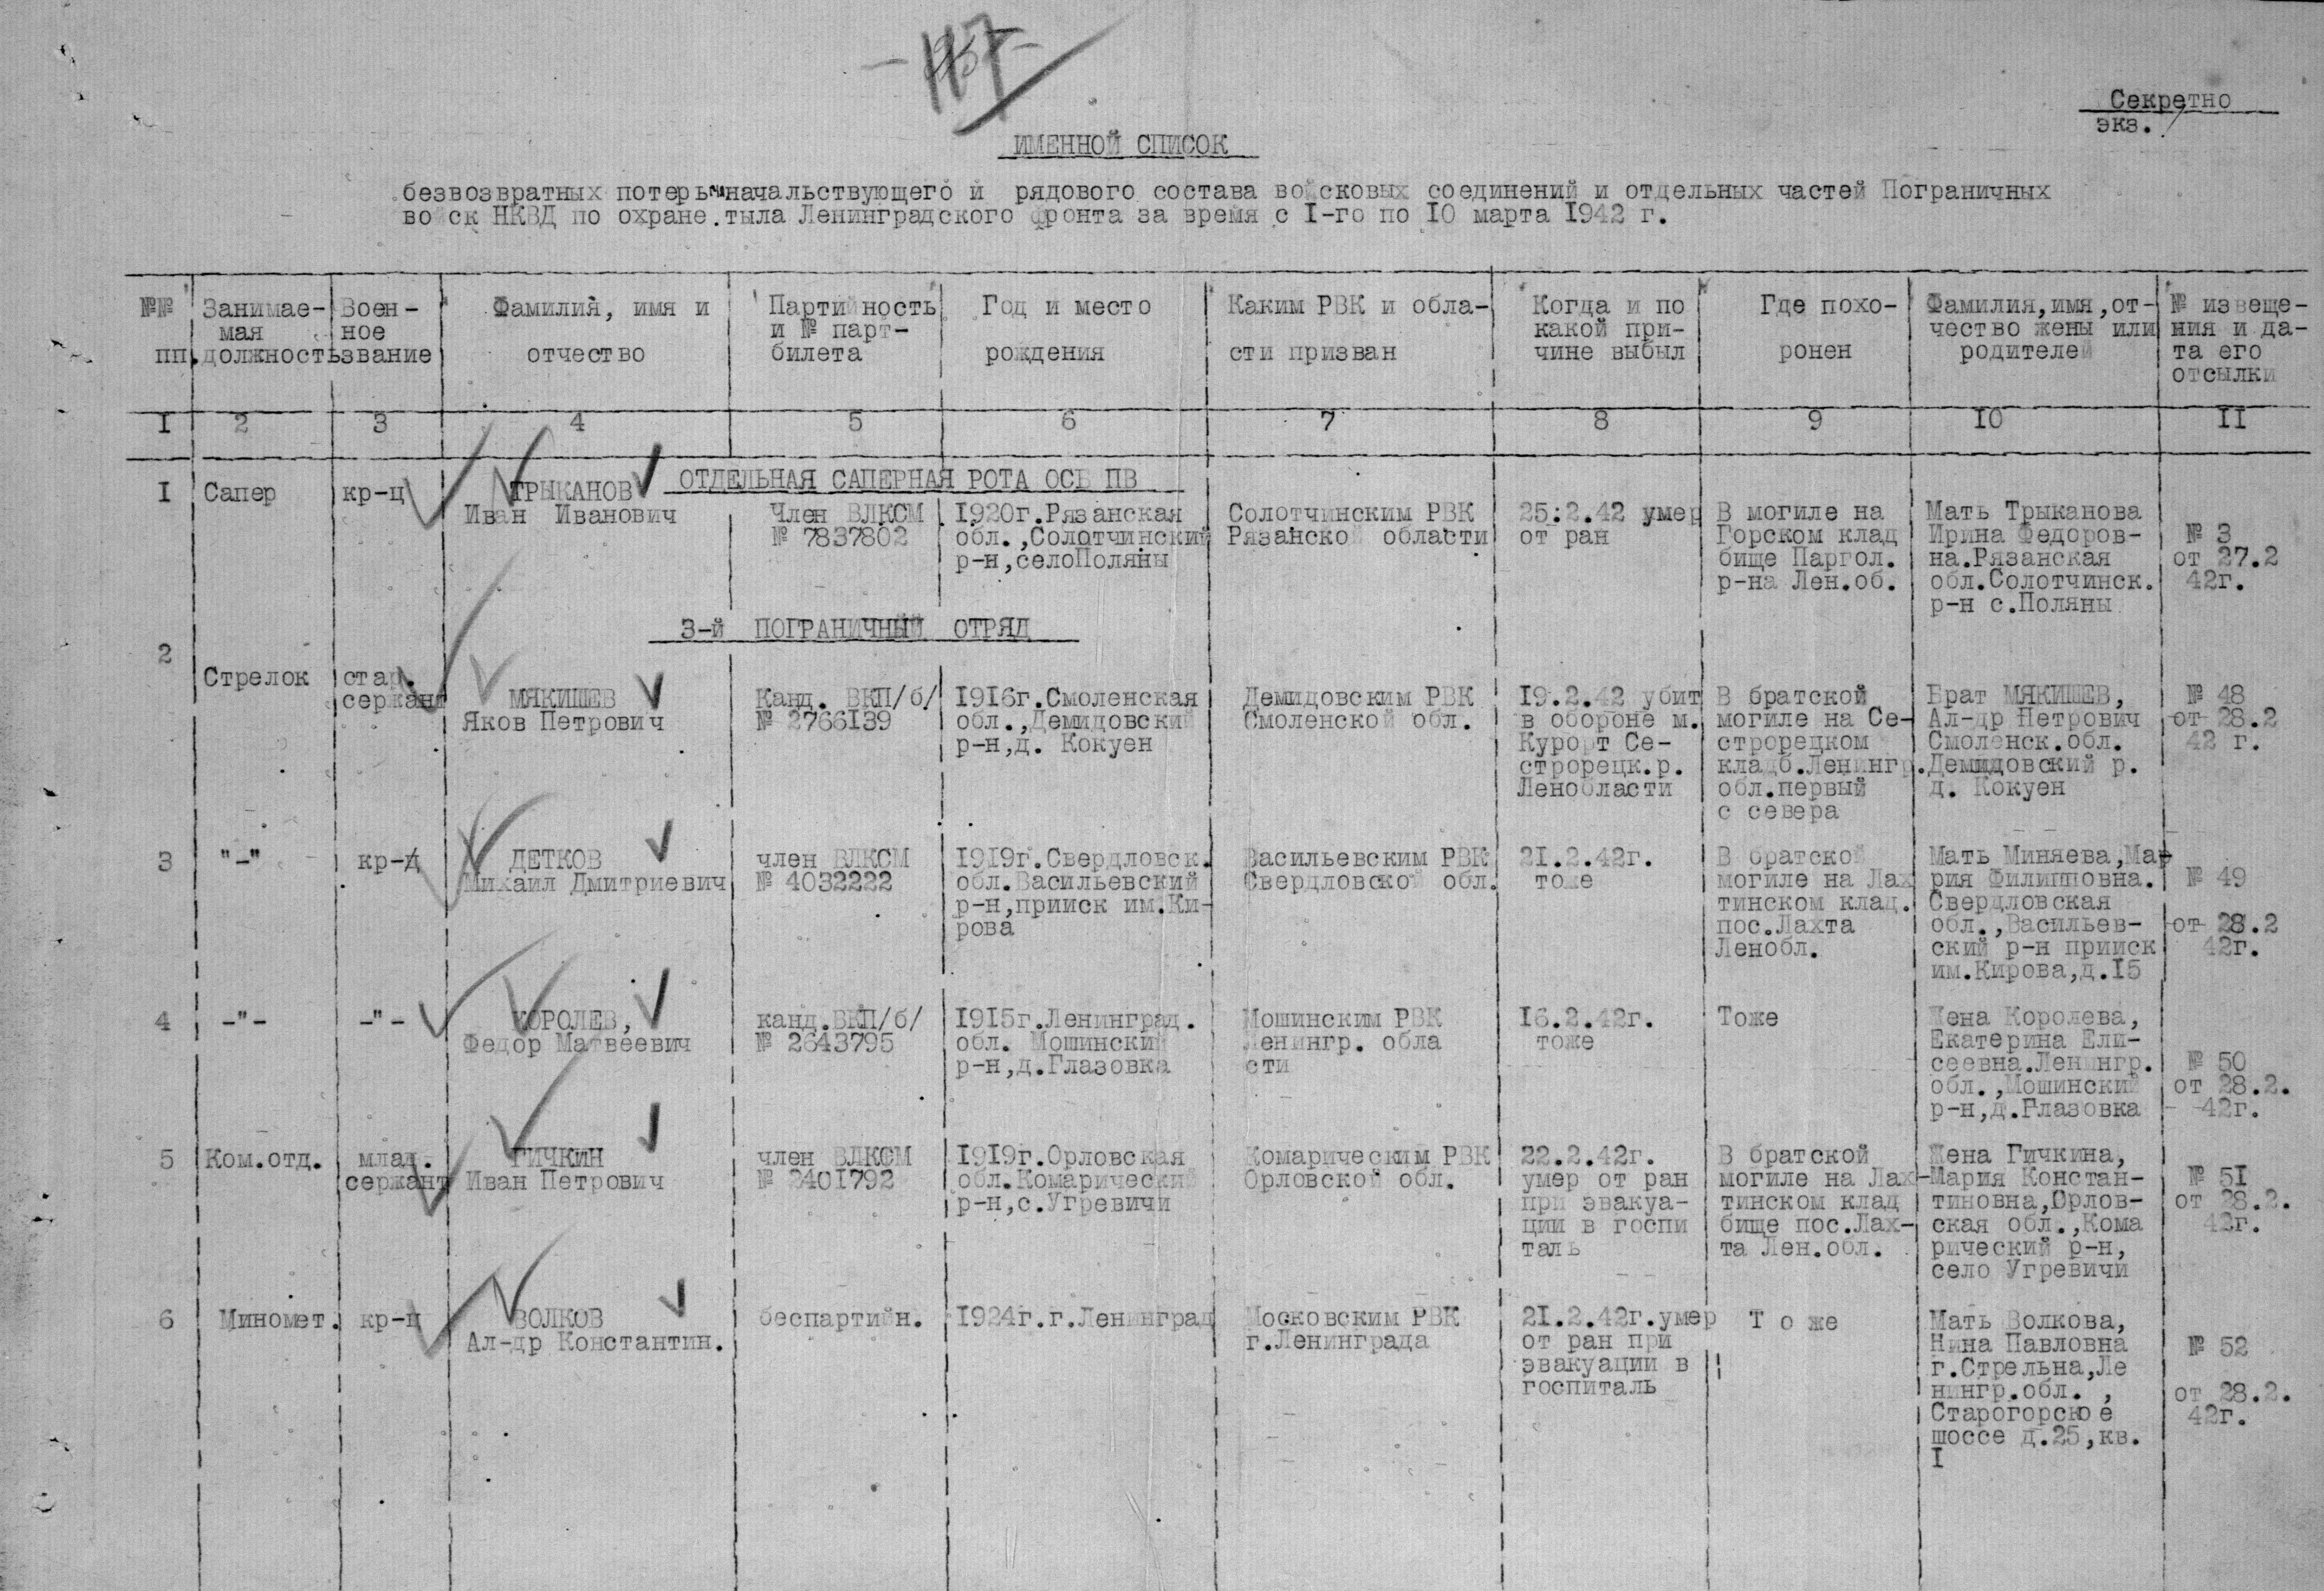 Секретно
экз.
ИМЕННОЙ СПИСОК
безвозвратных потерь начальствующего и рядового состава войсковых соединений и отдельных частей Пограничных
войск НКВД по охране тыла Ленинградского фронта за время с I-го по I0 марта I942 г.
№№ пп.
Занимае-
мая
должность
Воен-
ное
звание
Фамилия, имя и
отчество
Партийность
и № парт-
билета
Год и место
рождения
Каким РВК и обла-
сти призван
Когда и по
какой при-
чине выбыл
Где похо-
ронен
Фамилия,имя,от-
чество жены или
родителей
№ извеще-
ния и да-
та его
отсылки
I 2 3 4 5 6 7 8 9 I0 II
ОТДЕЛЬНАЯ САПЕРНАЯ РОТА ОСБ ПВ
I
Сапер
кр-ц
ТРЫКАНОВ
Иван Иванович
Член ВЛКСМ
№ 7837802
I920г.Рязанская
обл.,Солотчинский
р-н,селоПоляны
Солотчинским РВК
Рязанской области
25.2.42 умер
от ран
В могиле на
Горском клад
бище Паргол.
р-на Лен.об.
Мать Трыканова
Ирина Федоров-
на.Рязанская
обл.Солотчинск.
р-н с.Поляны
№ 3
от 27.2
42г.
3-й ПОГРАНИЧНЫЙ ОТРЯД
2
Стрелок
стар.
сержант
МЯКИШЕВ
Яков Петрович
Канд. ВКП/б/
№ 2766I39
I9I6г.Смоленская
обл.,Демидовский
р-н,д. Кокуен
Демидовским РВК
Смоленской обл.
I9.2.42 убит
в обороне м.
Курорт Се-
строрецк.р.
Ленобласти
В братской
могиле на Се-
строрецком
кладб.Ленингр.
обл.первый
с севера
Брат МЯКИШЕВ,
Ал-др Петрович
Смоленск.обл.
Демидовский р.
д. Кокуен
№ 48
от 28.2
42 г.
3
"-"
кр-ц
ДЕТКОВ
Михаил Дмитриевич
член ВЛКСМ
№ 4032222
I9I9г.Свердловск.
обл.Васильевский
р-н,прииск им.Ки-
рова
Васильевским РВК
Свердловской обл.
2I.2.42г.
тоже
В братской
могиле на Лах
тинском клад.
пос.Лахта
Ленобл.
Мать Миняева,Ма
рия Филипповна.
Свердловская
обл.,Васильев-
ский р-н прииск
им.Кирова,д.I5
№ 49
от 28.2
42г.
4
-"-
-"-
КОРОЛЕВ,
Федор Матвеевич
канд.ВКП/б/
№ 2643795
I9I5г.Ленинград.
обл. Мошинский
р-н,д.Глазовка
Мошинским РВК
Ленингр. обла
сти
I6.2.42г.
тоже
Тоже
Жена Королева,
Екатерина Ели-
сеевна.Ленингр.
обл.,Мошинский
р-н,д.Глазовка
№ 50
от 28.2.
42г.
5
Ком.отд.
млад.
сержант
ГИЧКИН
Иван Петрович
член ВЛКСМ
I9I9г.Орловская
обл.Комарический
р-н,с.Угревичи
Комарическим РВК
Орловской обл.
22.2.42г.
умер от ран
при эвакуа-
ции в госпи
таль
В братской
могиле на Лах-
тинском клад
бище пос.Лах-
та Лен.обл.
Жена Гичкина,
Мария Констан-
тиновна,Орлов-
ская обл.,Кома
рический р-н,
село Угревичи
№ 5I
от 28.2.
42г.
6
Миномет.
кр-ц
ВОЛКОВ
Ал-др Константин.
беспартийн.
I924г.г.Ленинград
Московским РВК
г.Ленинграда
2I.2.42г.умер
от ран при
эвакуации в
госпиталь
Т о же
Мать Волкова,
Нина Павловна
г.Стрельна,Ле
нингр.обл. ,
Старогорское
шоссе д.25,кв.
I
№ 52
от 28.2.
42г.